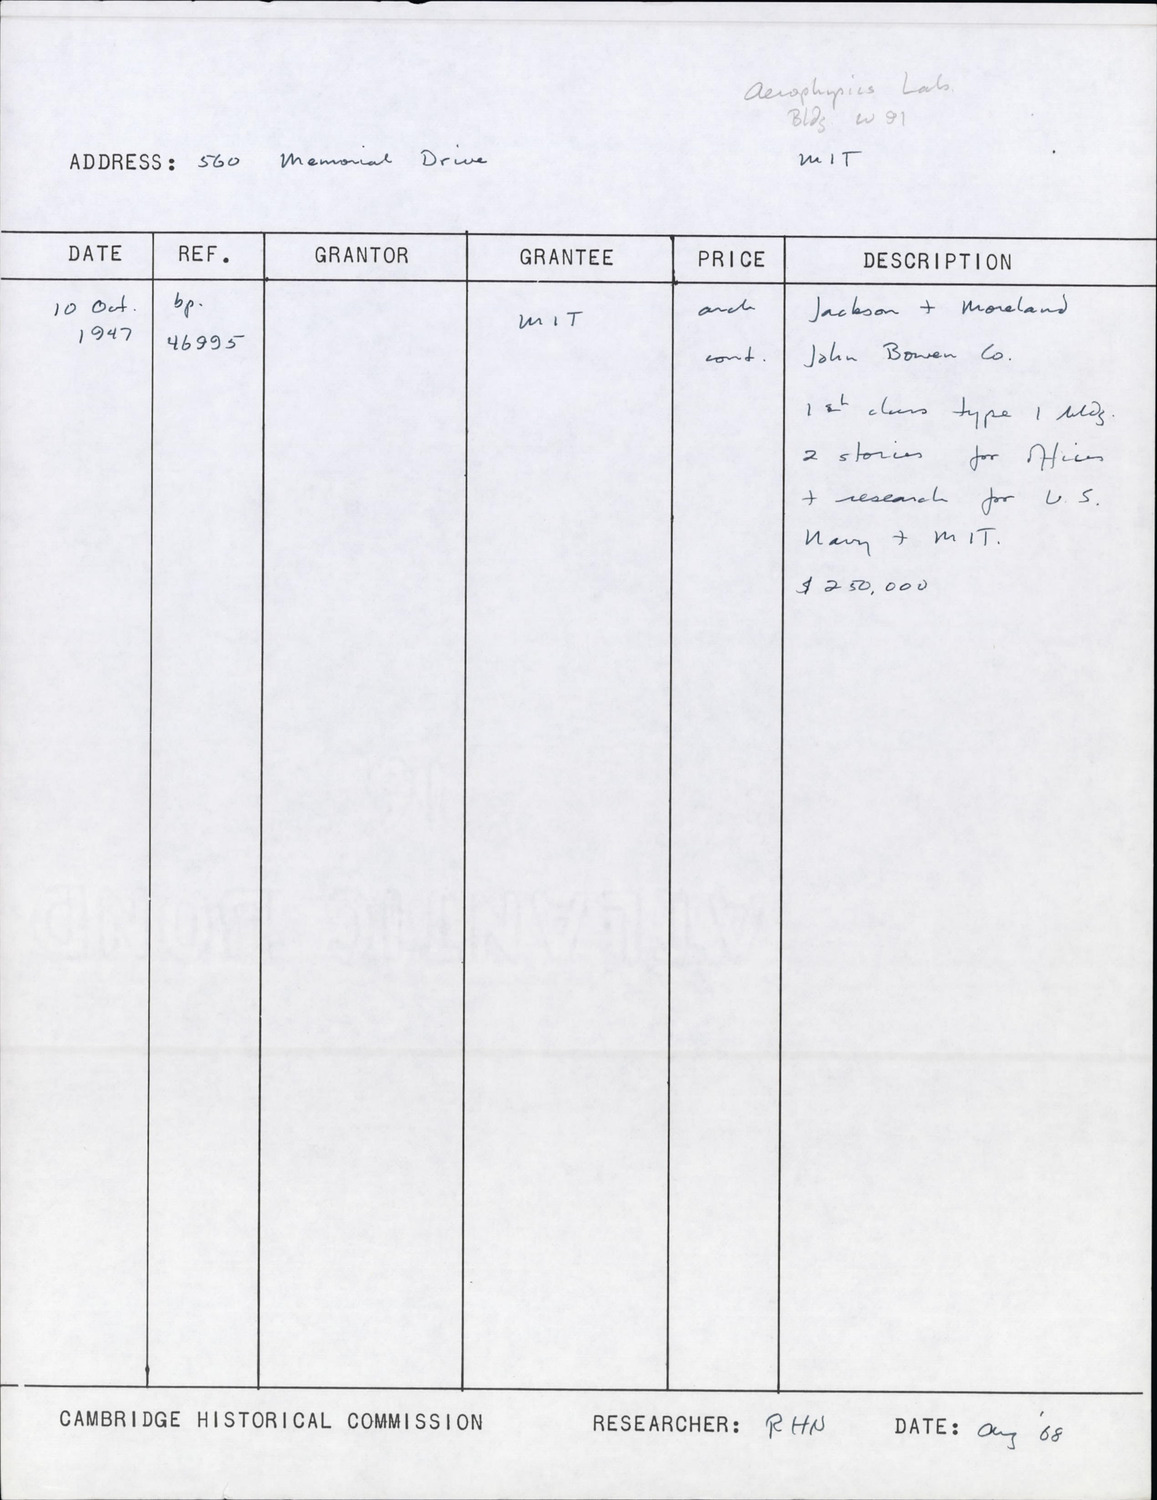 Aerophysics Lab.
Bldg W 91
ADDRESS: 560 Memorial Drive MIT
DATE REF. GRANTOR GRANTEE PRICE DESCRIPTION
10 Oct. bp. MIT arch Jackson + Moreland
1947 46995 cont. John Bowen Co.
1st class type 1 bldg.
2 stories for offices
+ research for U.S.
Navy + MIT.
$250,000
CAMBRIDGE HISTORICAL COMMISSION RESEARCHER: RHN DATE: Aug '68